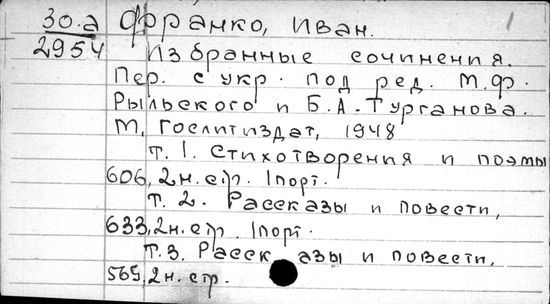 30.а Франко, Иван. 1
2954 Избранные сочинения.
Пер. с укр. под ред. М.Ф.
Рыльского и Б.А. Турганова.
М, Гослитиздат, 1948
т. 1. Стихотворения и поэмы
606, 2н. стр. 1порт.
т. 2. Рассказы и повести,
633, 2н. стр. 1порт.
т. 3. Расск азы и повести,
565, 2н. стр.